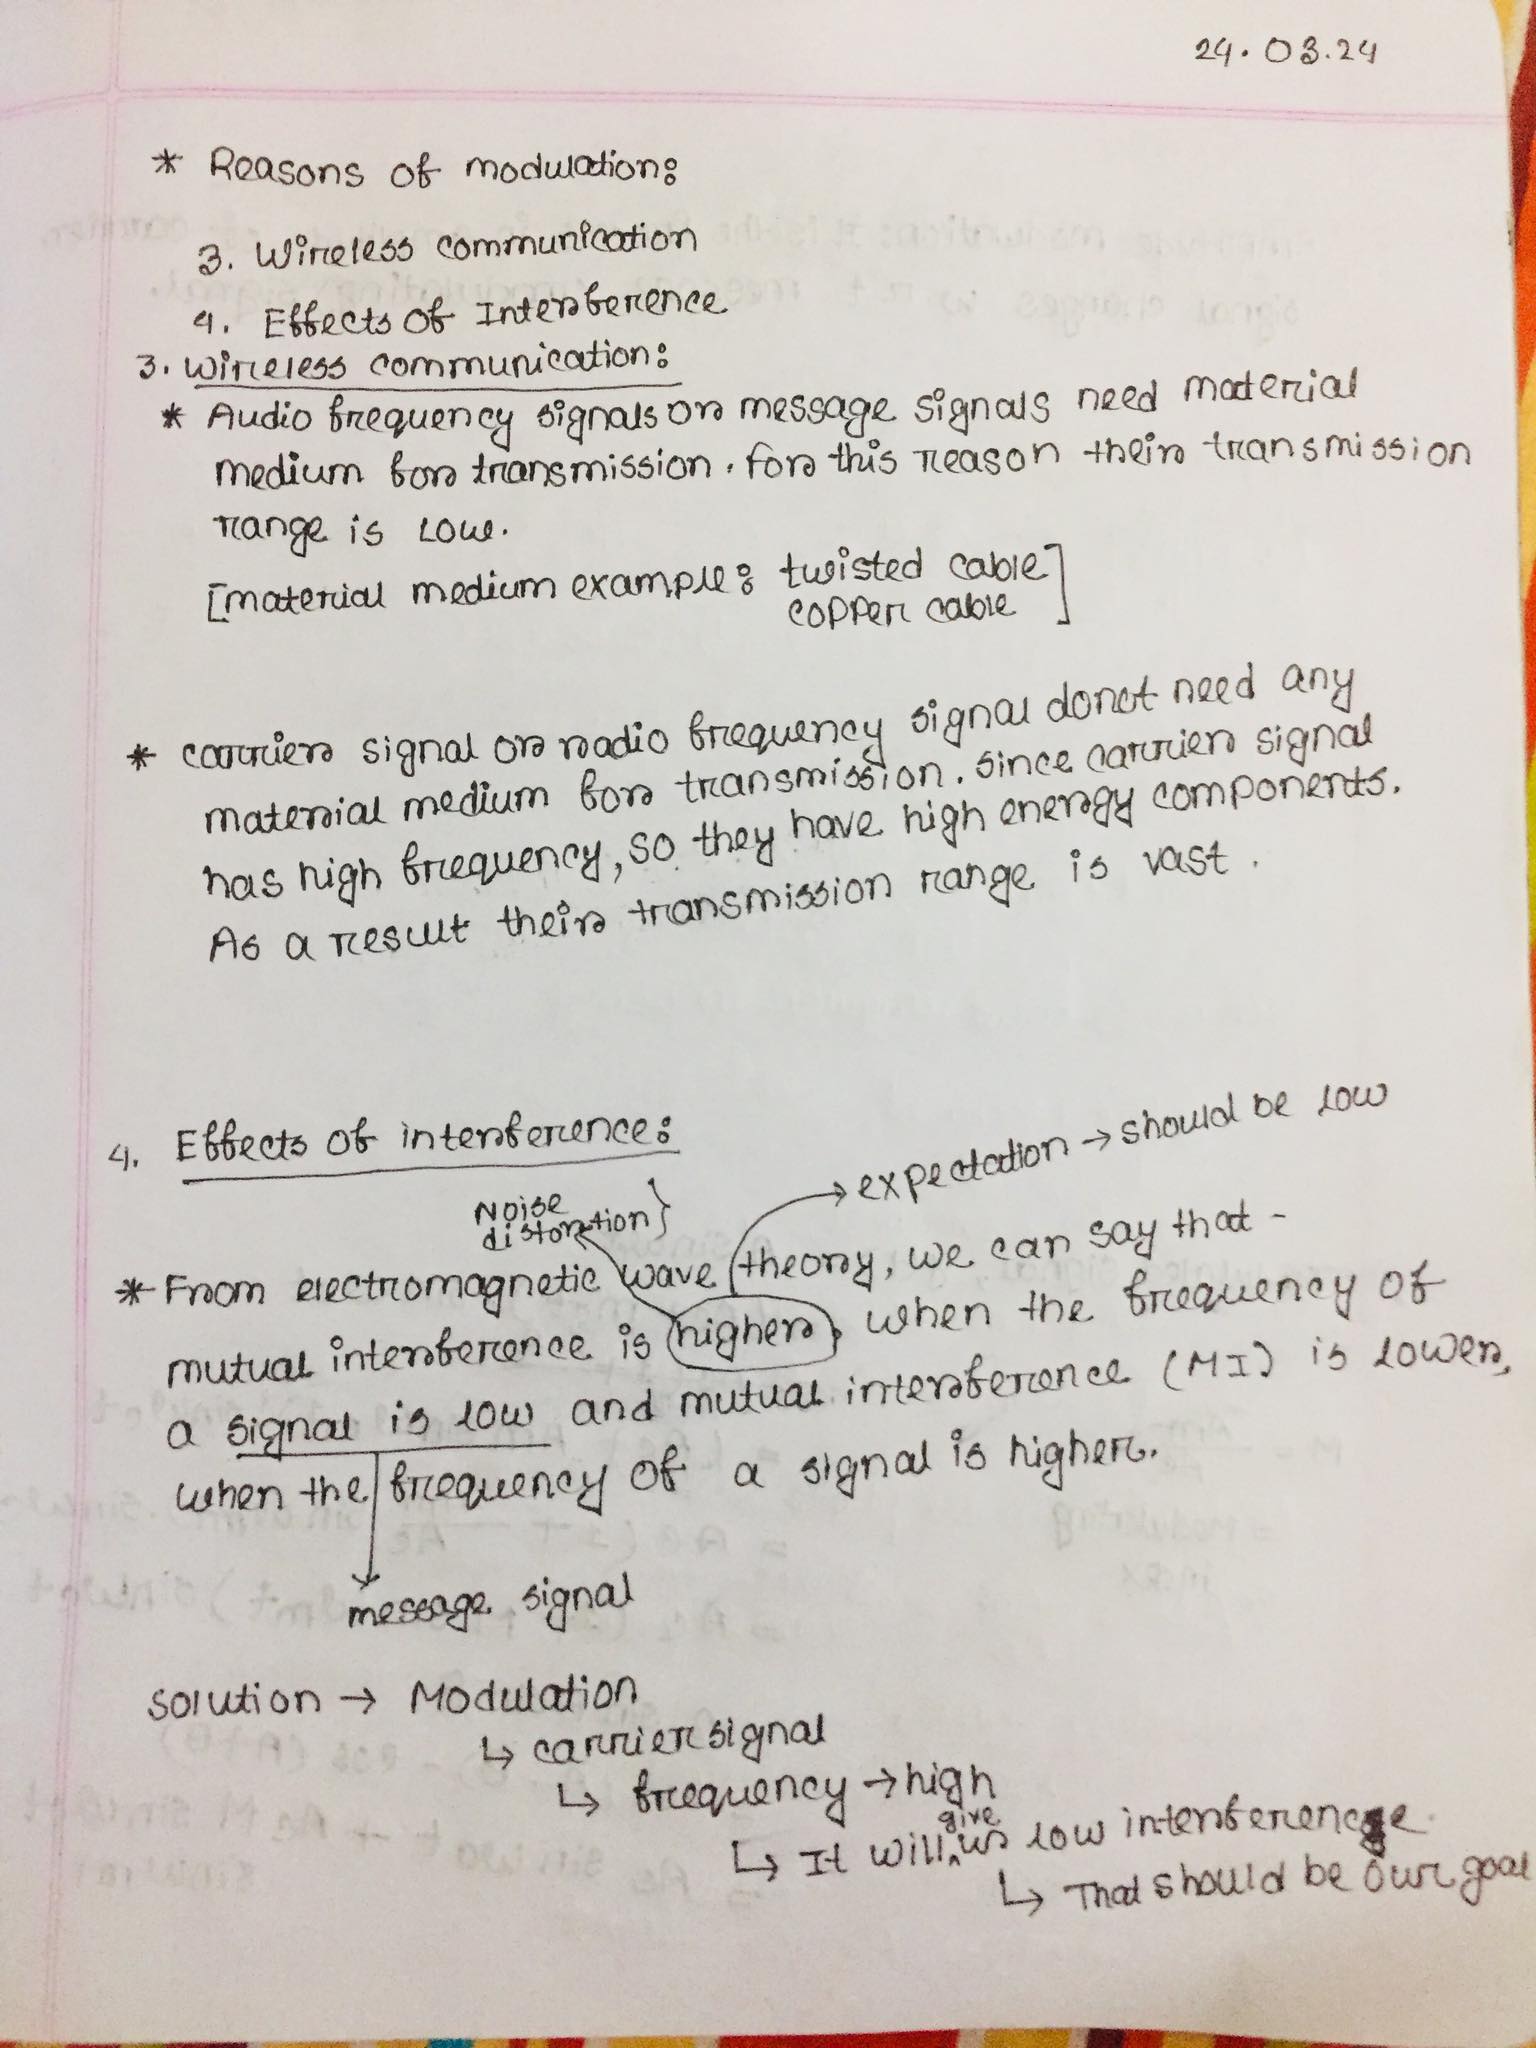 24.03.24
* Reasons of modulation:
3. Wireless communication
4. Effects of Interference
3. Wireless communication:
* Audio frequency signals or message signals need material
medium for transmission. For this reason their transmission
range is low.
[material medium example: twisted cable
copper cable]
* carrier signal or radio frequency signal donot need any
material medium for transmission. Since carrier signal
has high frequency, so they have high energy components.
As a result their transmission range is vast.
4. Effects of interference:
expectation → should be low
Noise
distortion}
* From electromagnetic wave theory, we can say that -
mutual interference is higher, when the frequency of
a signal is low and mutual interference (MI) is lower,
when the frequency of a signal is higher.
message signal
solution → Modulation
↳ carrier signal
↳ frequency → high
↳ It will give us low interference.
↳ That should be our goal